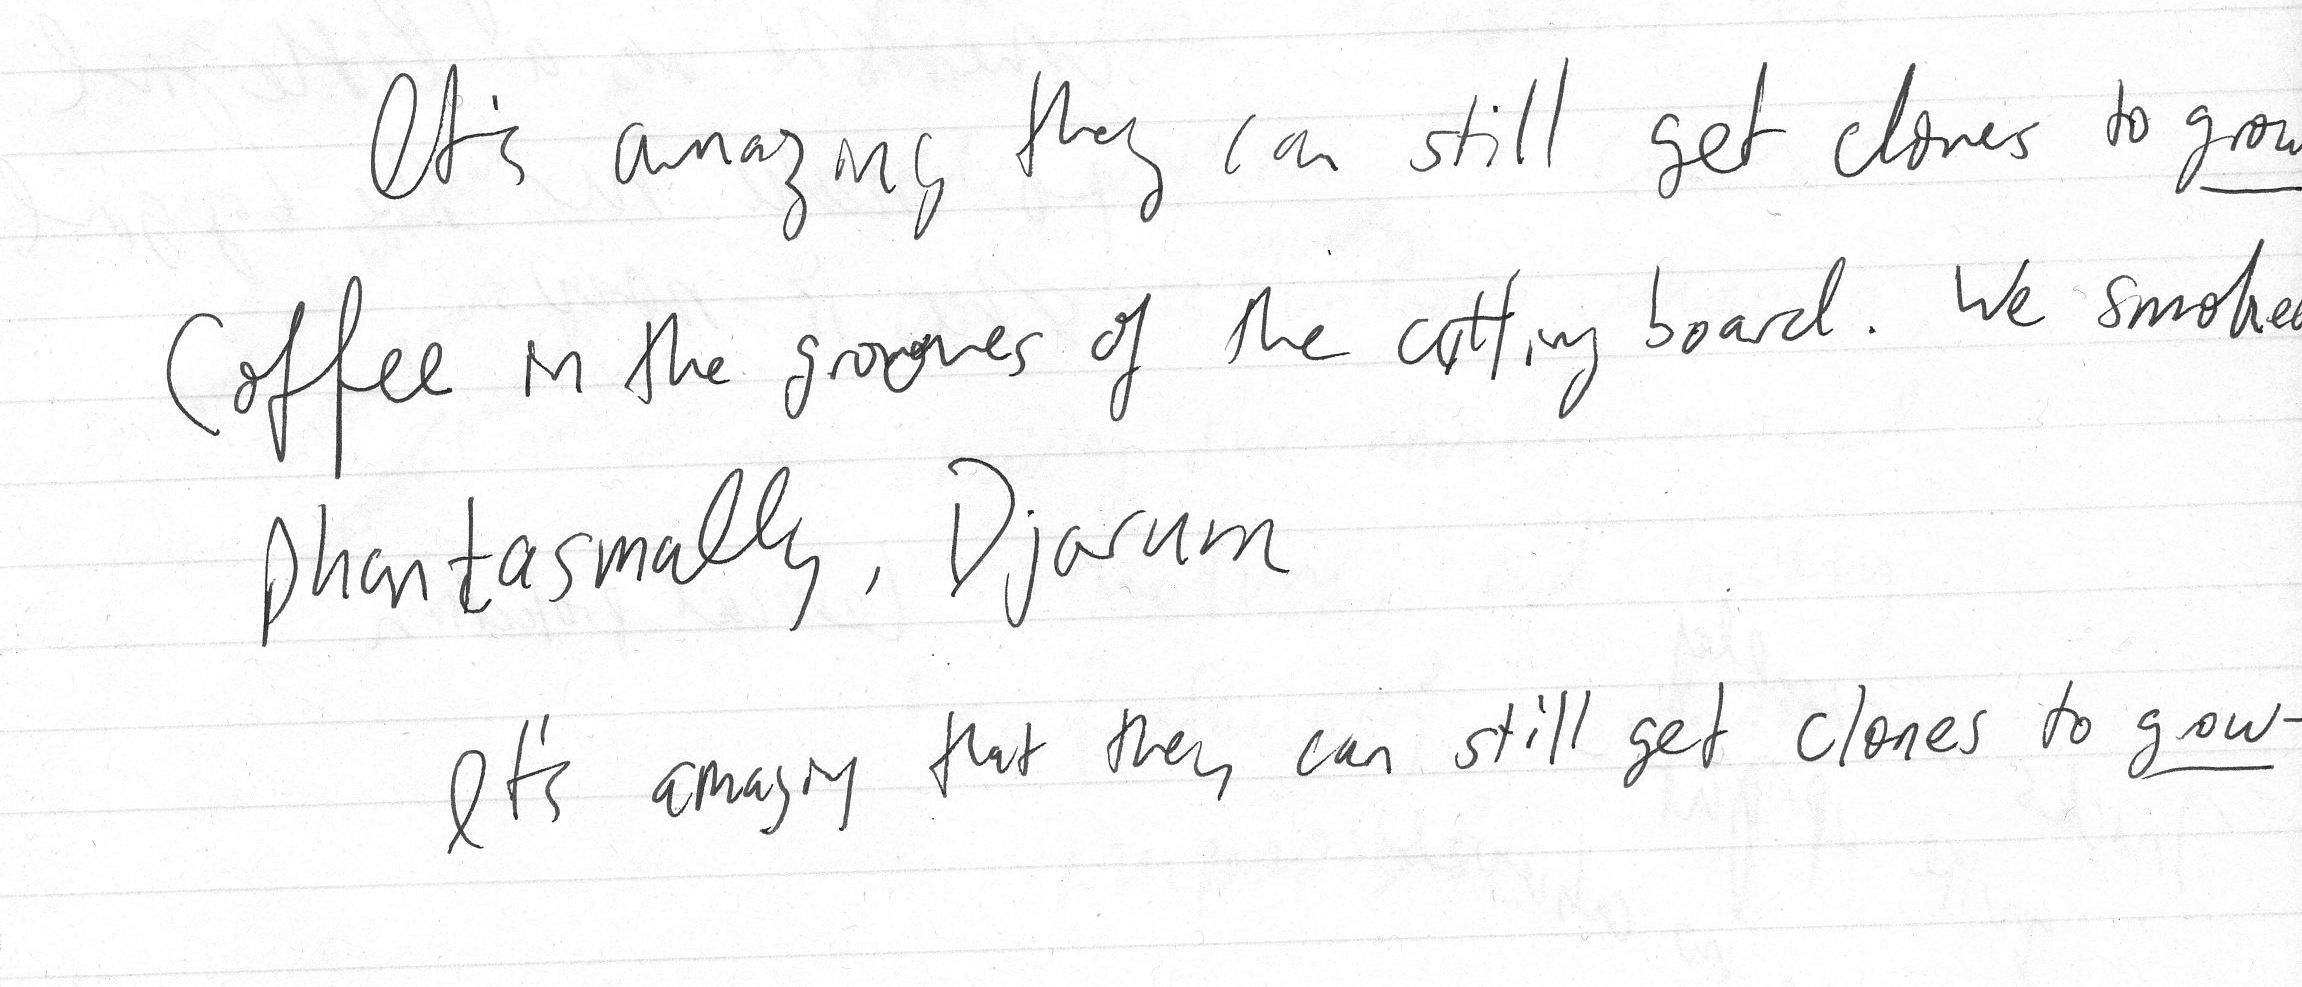 It's amazing they can still get clones to grow
Coffee in the grooves of the cutting board. We smoked
phantasmally, Djarum
It's amazing that they can still get clones to grow-